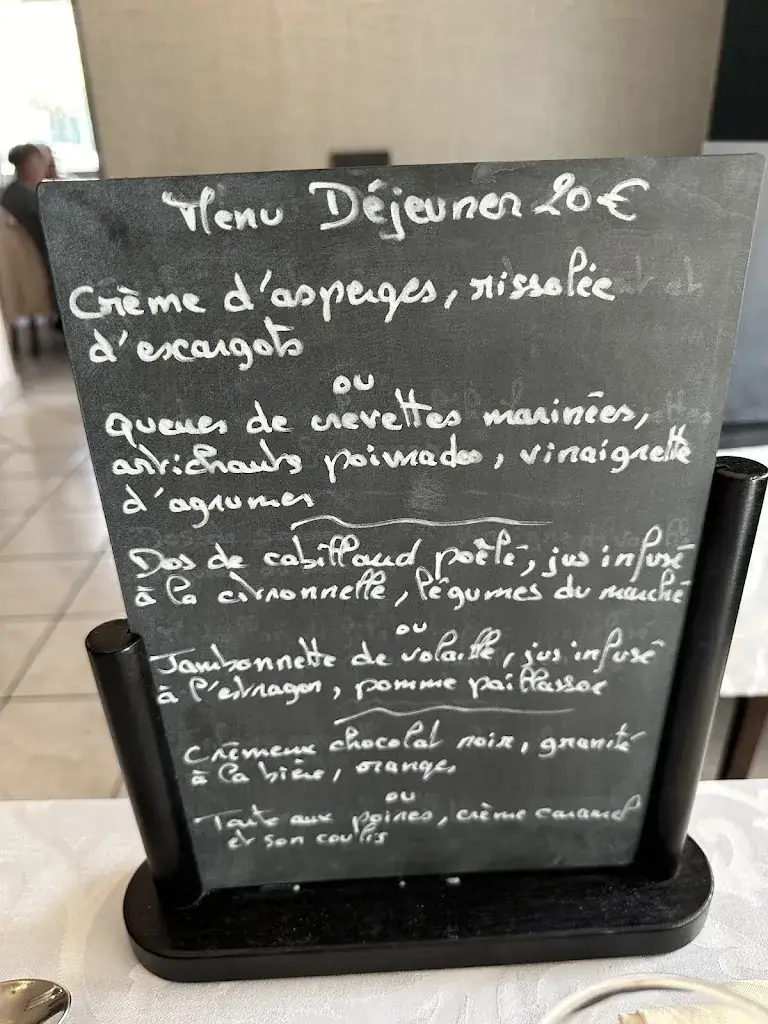 Menu Déjeuner 20€
Crème d'asperges, rissolée
d'escargots
ou
Queues de crevettes marinées,
artichauts poivrades, vinaigrette
d'agrumes
Dos de cabillaud poêlé, jus infusé
à la citronnelle, légumes du marché
ou
Jambonnette de volaille, jus infusé
à l'estragon, pomme paillasson
Crèmeux chocolat noir, granité
à la bière, orange,
ou
Tarte aux poires, crème caramel
et son coulis